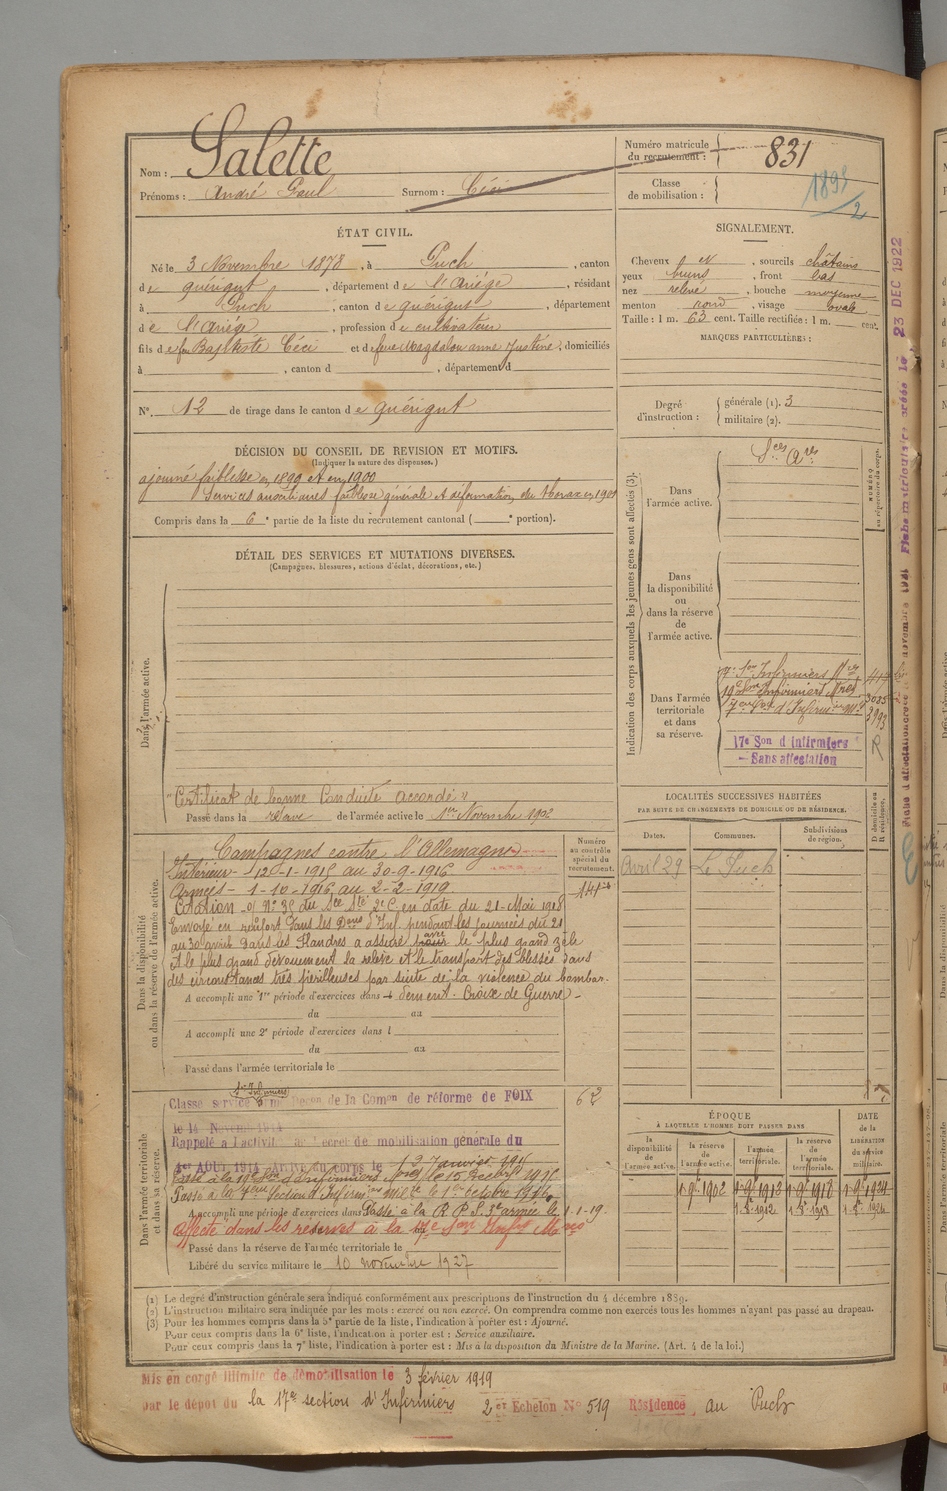 Nom : Salette
Prénoms : André Paul Surnom : Céci
Numéro matricule
du recrutement : 831
Classe
de mobilisation :
1898/2
ÉTAT CIVIL.
Né le 3 Novembre 1878, à Puch, canton
de quérigut, département de l'Ariège, résidant
à Puch, canton de quérigut, département
de l'Ariège, profession de cultivateur
fils de feu Baptiste Céci et de feue Magdalou anne Justine, domiciliés
à , canton d , département d
N° 12 de tirage dans le canton de quérigut
SIGNALEMENT.
Cheveux et , sourcils châtains
yeux bruns , front bas
nez relevé , bouche moyenne
menton rond , visage ovale
Taille : 1 m. 63 cent. Taille rectifiée : 1 m. cent.
MARQUES PARTICULIÈRES :
Degré
d'instruction :
générale (1). 3
militaire (2).
DÉCISION DU CONSEIL DE REVISION ET MOTIFS.
(Indiquer la nature des dispenses.)
ajourné faiblesse en 1899 et en 1900
Services auxiliaires faiblesse générale et déformation du thorax en 1901
Compris dans la 6e partie de la liste du recrutement cantonal ( e portion).
DÉTAIL DES SERVICES ET MUTATIONS DIVERSES.
(Campagnes, blessures, actions d'éclat, décorations, etc.)
Dans l'armée active.
"Certificat de bonne Conduite accordé"
Passé dans la réserve de l'armée active le 1er Novembre 1902
Indication des corps auxquels les jeunes gens sont affectés (3).
Dans
l'armée active.
Sces Axres
NUMÉRO
au répertoire du corps.
Dans
la disponibilité
ou
dans la réserve
de
l'armée active.
Dans l'armée
territoriale
et dans
sa réserve.
3085
3993
17e Son d'Infirmiers
- Sans affectation
R
Dans la disponibilité
ou dans la réserve de l'armée active.
Campagnes contre l'Allemagne
Intérieur - 12-1-1915 au 30-9-1916
Armées - 1-10-1916 au 2-2-1919
Citation - O/ N° 35 du Sce Sté 2e C en date du 21-Mai 1918
Envoyé en renfort dans les Dons d'Inf. pendant les journées du 21
au 30 avril dans les Flandres a assuré avec le plus grand zèle
et le plus grand dévouement la relève et le transport des blessés dans
des circonstances très périlleuses par suite de la violence du bombar-
A accompli une 1re période d'exercices dans dement - Croix de Guerre -
du au
A accompli une 2e période d'exercices dans l
du au
Passé dans l'armée territoriale le
Numéro
au contrôle
spécial du
recrutement.
LOCALITÉS SUCCESSIVES HABITÉES
PAR SUITE DE CHANGEMENTS DE DOMICILE OU DE RÉSIDENCE.
Dates. Communes. Subdivisions
de région.
D domicile ou
R résidence.
Avril 29 Le Puch
Dans l'armée territoriale
et dans sa réserve.
Classé service de la Comon de réforme de FOIX
62
le 14 Novem 1914
Rappelé à l'activité décret de mobilisation générale du
1er AOUT 1914 Arrivé au corps le 12 Janvier 1915
Passé à la section d'Infirmiers le 1er octobre 1916
A accompli une période d'exercices dans Passé à la R P S 3e armée le 1-1-19.
Affecté dans les réserves à la 17e Son Infrs Mres
Passé dans la réserve de l'armée territoriale le
Libéré du service militaire le 10 novembre 1927
ÉPOQUE
À LAQUELLE L'HOMME DOIT PASSER DANS
la
disponibilité
de
l'armée active.
la réserve
de
l'armée active.
l'armée
territoriale.
la réserve
de
l'armée
territoriale.
DATE
DE LA
LIBÉRATION
du service
militaire.
(1) Le degré d'instruction générale sera indiqué conformément aux prescriptions de l'instruction du 4 décembre 1889.
(2) L'instruction militaire sera indiquée par les mots : exercé ou non exercé. On comprendra comme non exercés tous les hommes n'ayant pas passé au drapeau.
(3) Pour les hommes compris dans la 5e partie de la liste, l'indication à porter est : Ajourné.
Pour ceux compris dans la 6e liste, l'indication à porter est : Service auxiliaire.
Pour ceux compris dans la 7e liste, l'indication à porter est : Mis à la disposition du Ministre de la Marine. (Art. 4 de la loi.)
Mis en congé illimité de démobilisation le 3 février 1919
par le dépôt du la 17e section d'Infirmiers 2e Echelon N° 519 Résidence au Puch
Fiche matriculaire créée le 23 DEC 1922